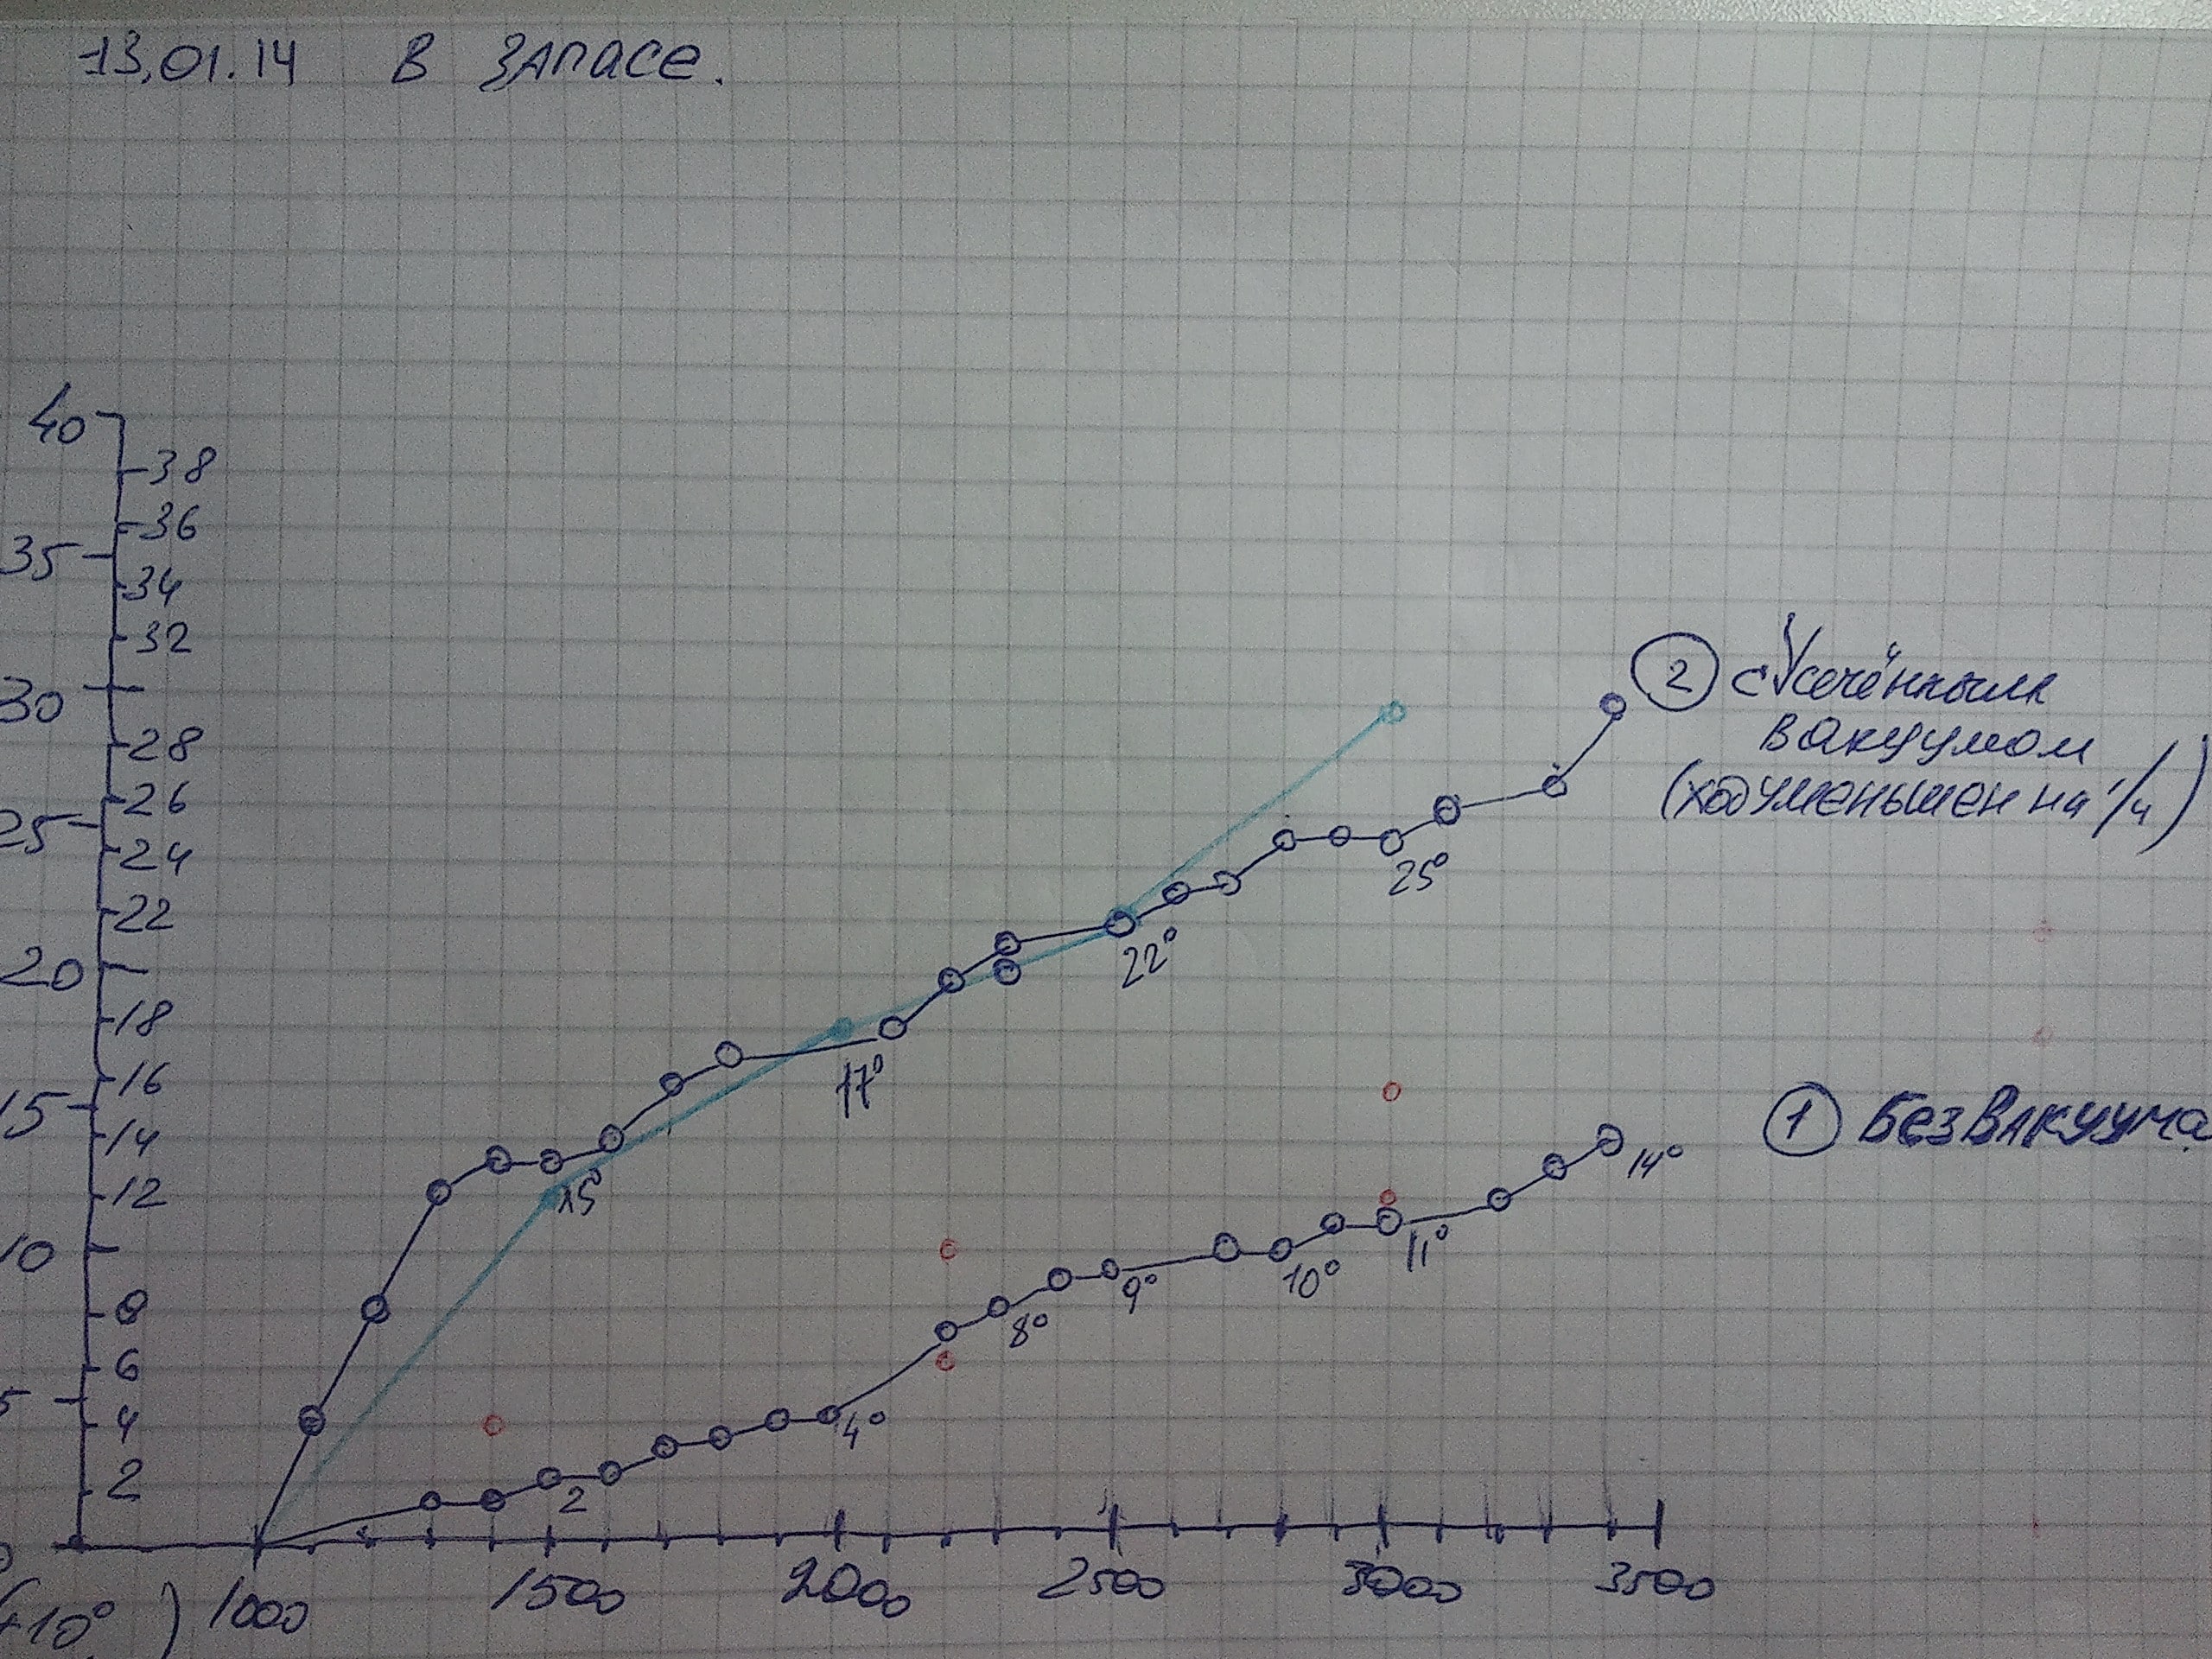 13,01.14 В ЗАПАСЕ.
40
38
36
35
34
32
30
28
26
25
24
22
20
18
16
15
14
12
10
8
6
5
4
2
0
② с Усечённым
вакуумом
(ход уменьшен на 1/4)
25°
22°
17°
15°
① Без Вакуума
14°
11°
10°
9°
8°
4°
2
1000 1500 2000 2500 3000 3500
+10° )